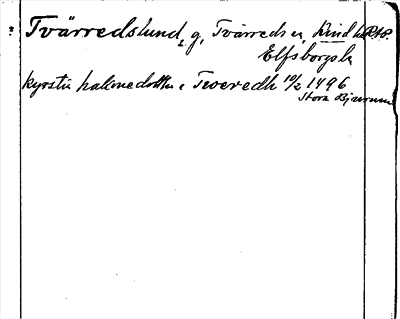 Tvärredslund, g, Tvärreds sn, Kind h
Elfsborgs l
kyrstin halmedotter i Tveredh 10/2 1496
Stora Bjurum